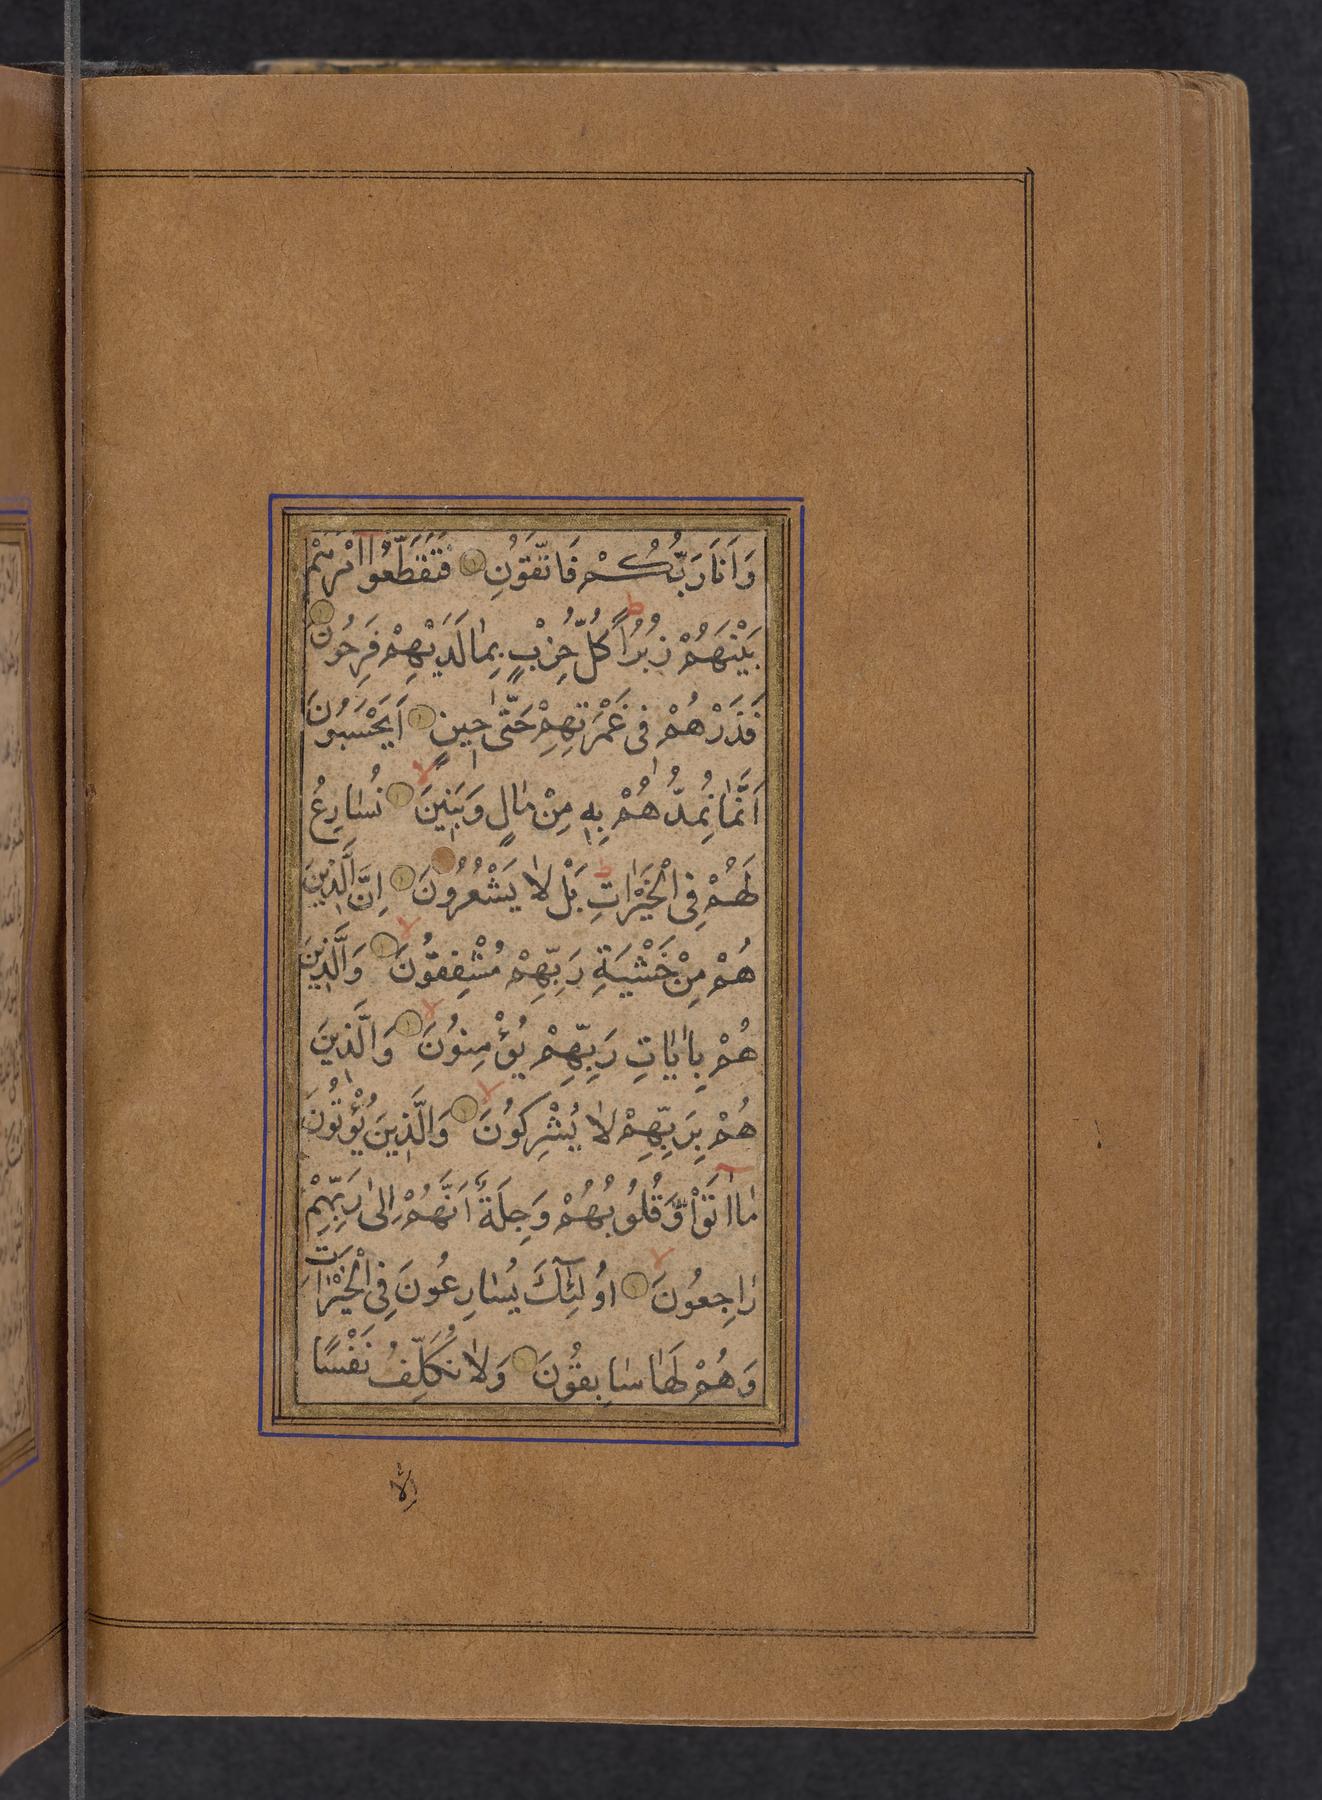 وَاَنَا۠ رَبُّكُمْ فَاتَّقُونِ فَتَقَطَّعُوا اَمْرَهُمْ
بَيْنَهُمْ زُبُرًا ط كُلُّ حِزْبٍ بِمَا لَدَيْهِمْ فَرِحُونَ
فَذَرْهُمْ فِى غَمْرَتِهِمْ حَتّٰى حِينٍ اَيَحْسَبُونَ
اَنَّمَا نُمِدُّهُمْ بِهٖ مِنْ مٰالٍ وَبَنِينَ لا نُسٰارِعُ
لَهُمْ فِى الْخَيْرٰاتِ ط بَلْ لٰا يَشْعُرُونَ اِنَّ الَّذِينَ
هُمْ مِنْ خَشْيَةِ رَبِّهِمْ مُشْفِقُونَ لا وَالَّذِينَ
هُمْ بِاٰيٰاتِ رَبِّهِمْ يُؤْمِنُونَ لا وَالَّذِينَ
هُمْ بِرَبِّهِمْ لٰا يُشْرِكُونَ لا وَالَّذِينَ يُؤْتُونَ
مٰا اٰتَوْا وَّقُلُوبُهُمْ وَجِلَةٌ اَنَّهُمْ اِلٰى رَبِّهِمْ
رٰاجِعُونَ لا اُولٰۤئِكَ يُسٰارِعُونَ فِى الْخَيْرٰاتِ
وَهُمْ لَهٰا سٰابِقُونَ وَلٰا نُكَلِّفُ نَفْسًا
اِلّا